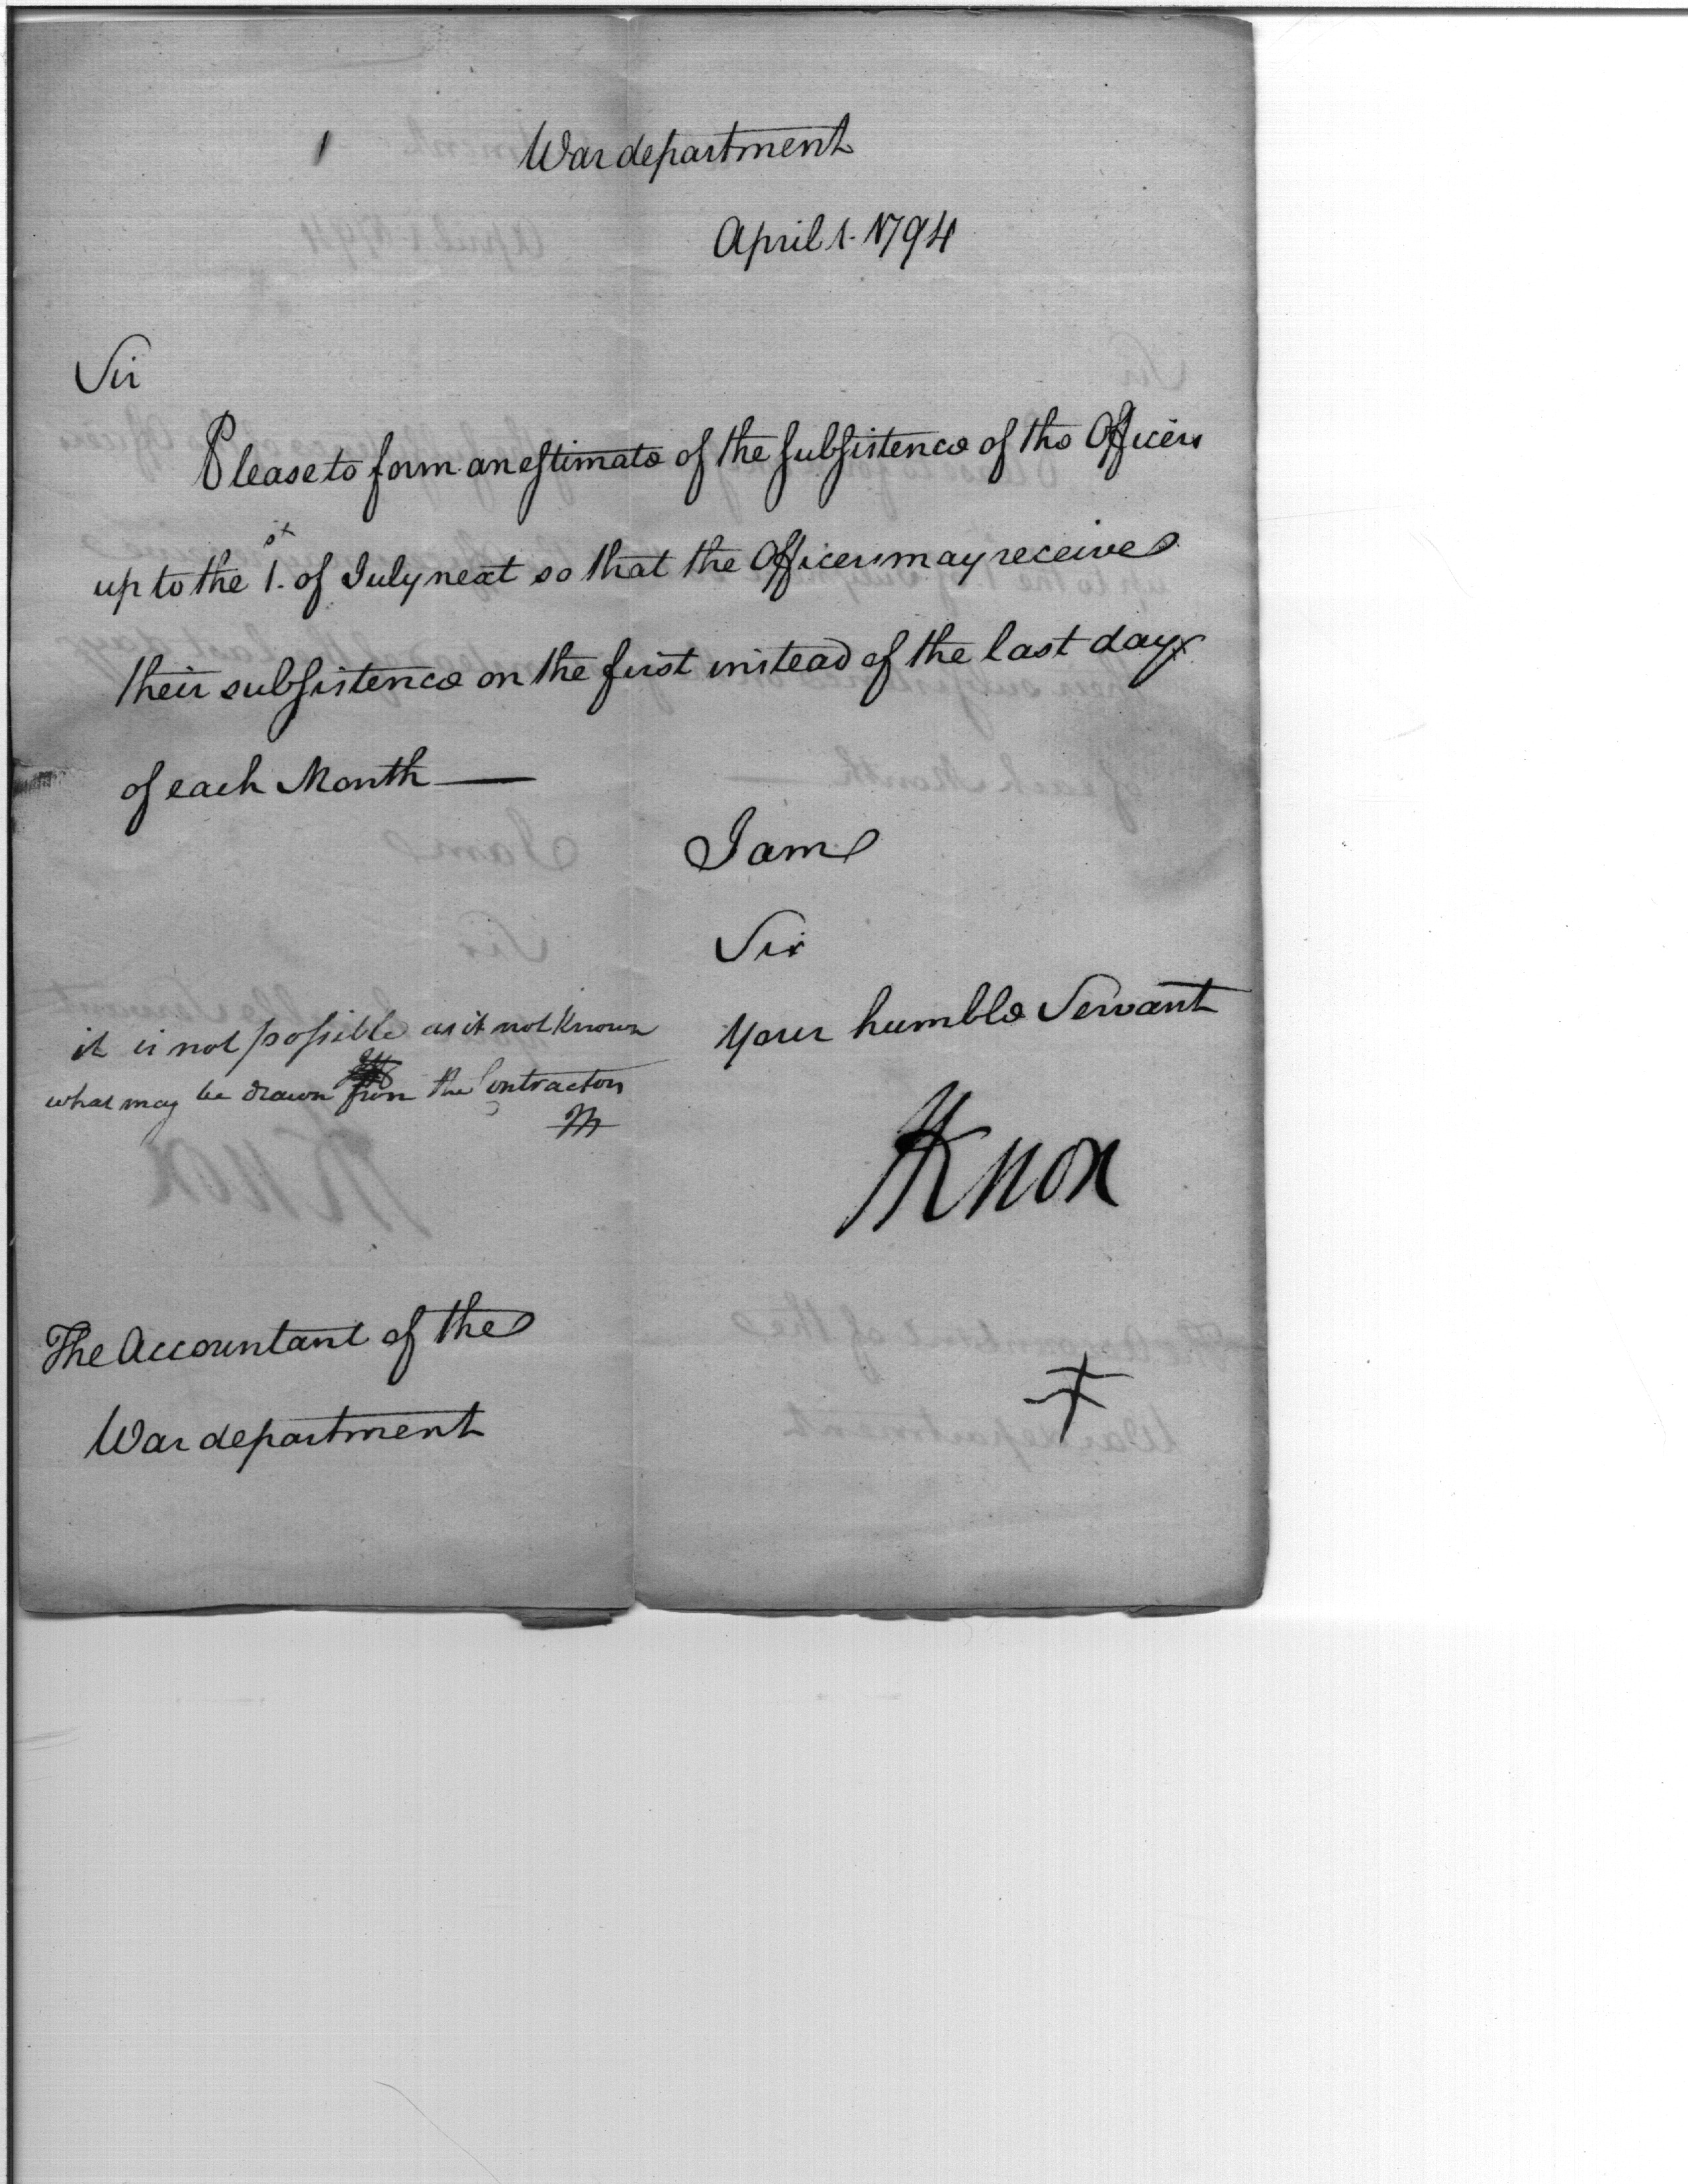 War department
April 1. 1794
Sir
Please to form an estimate of the subsistence of the Officers
up to the 1st. of July next so that the Officers may receive
their subsistence on the first instead of the last day
of each Month —
I am
Sir
your humble Servant
HKnox
it is not possible as it not Known
what may be drawn from the Contractors
The Accountant of the
War department